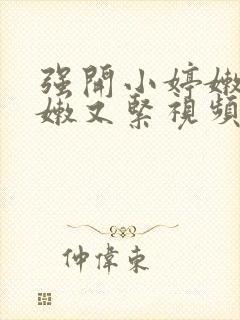 强開小婷嫩
嫩又緊視頻
仲偉東